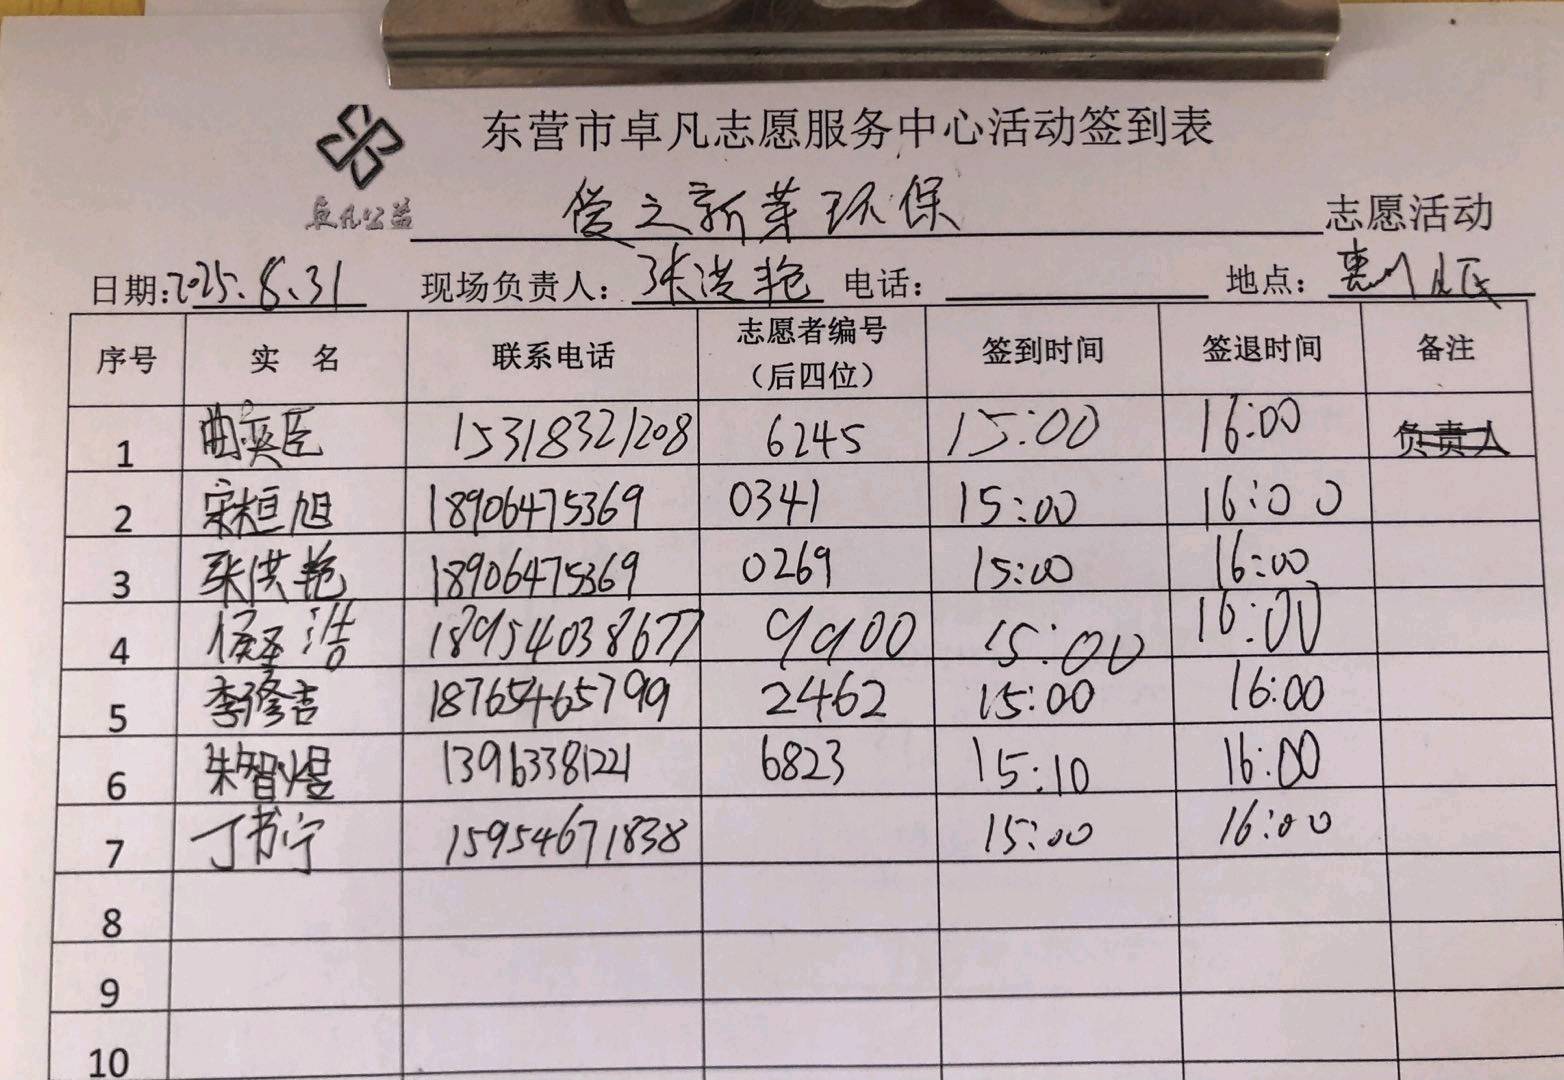 东营市卓凡志愿服务中心活动签到表
卓凡公益
爱之新芽环保 志愿活动
日期:2025.8.31 现场负责人：张洪艳 电话： 地点：惠州
序号 实 名 联系电话 志愿者编号（后四位） 签到时间 签退时间 备注
1 曲奕臣 15318321208 6245 15:00 16:00 负责人
2 宋桓旭 18906475369 0341 15:00 16:00
3 张洪艳 18906475369 0269 15:00 16:00
4 浩 18954038677 9900 15:00 16:00
5 李修吉 18765465799 2462 15:00 16:00
6 朱智煜 13963381221 6823 15:10 16:00
7 丁书宁 15954671838 15:00 16:00
8
9
10